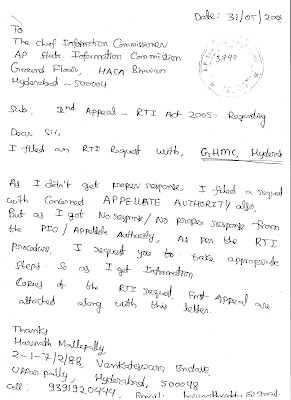 Date: 31/05/200
To
The Chief Information Commissioner
AP State Information Commission
Ground Floor, HACA Bhavan
Hyderabad - 500004
3740
Sub: IInd Appeal - RTI Act 2005 - Regarding
Dear Sir,
I filed an RTI Request with, GHMC, Hyderab
As I didn't get proper response, I filed a request
with Concerned APPELLATE AUTHORITY also,
But as I got No response/No proper response from
the PIO/Appellate Authority, As per the RTI
Procedure, I request you to take appropriate
Steps So as I get Information.
Copies of the RTI request, First Appeal are
attached along with this letter.
Thanks
Harinath Mallepally,
2-1-7/2/88, Venkateswara Enclave,
Upparpally, Hyderabad, 500048
Cell: 9391920444, Email: